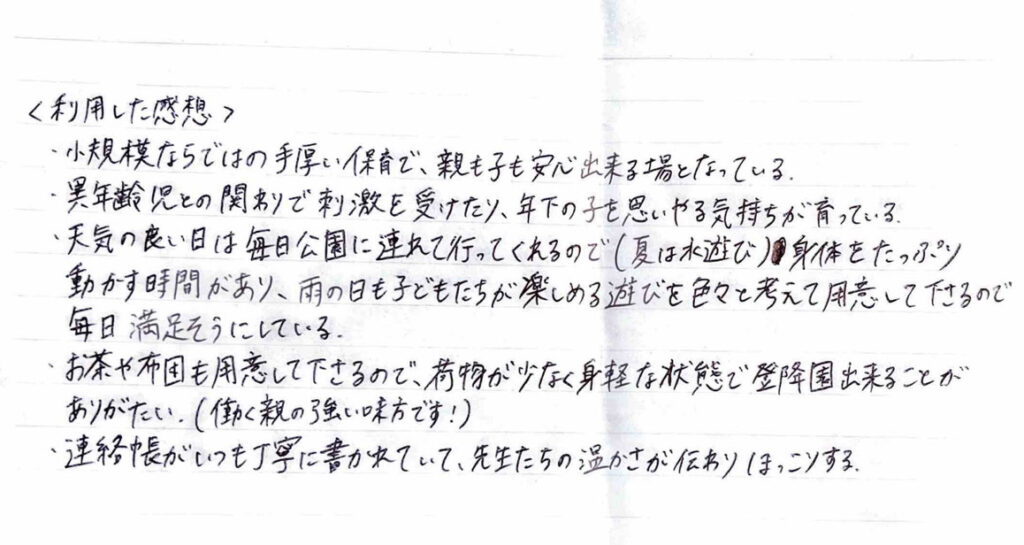 〈利用した感想〉
・小規模ならではの手厚い保育で、親も子も安心出来る場となっている。
・異年齢児との関わりで刺激を受けたり、年下の子を思いやる気持ちが育っている。
・天気の良い日は毎日公園に連れて行ってくれるので(夏は水遊び)身体をたっぷり
動かす時間があり、雨の日も子どもたちが楽しめる遊びを色々と考えて用意して下さるので
毎日満足そうにしている。
・お茶や布団も用意して下さるので、荷物が少なく身軽な状態で登降園出来ることが
ありがたい。(働く親の強い味方です!)
・連絡帳がいつも丁寧に書かれていて、先生たちの温かさが伝わりほっこりする。